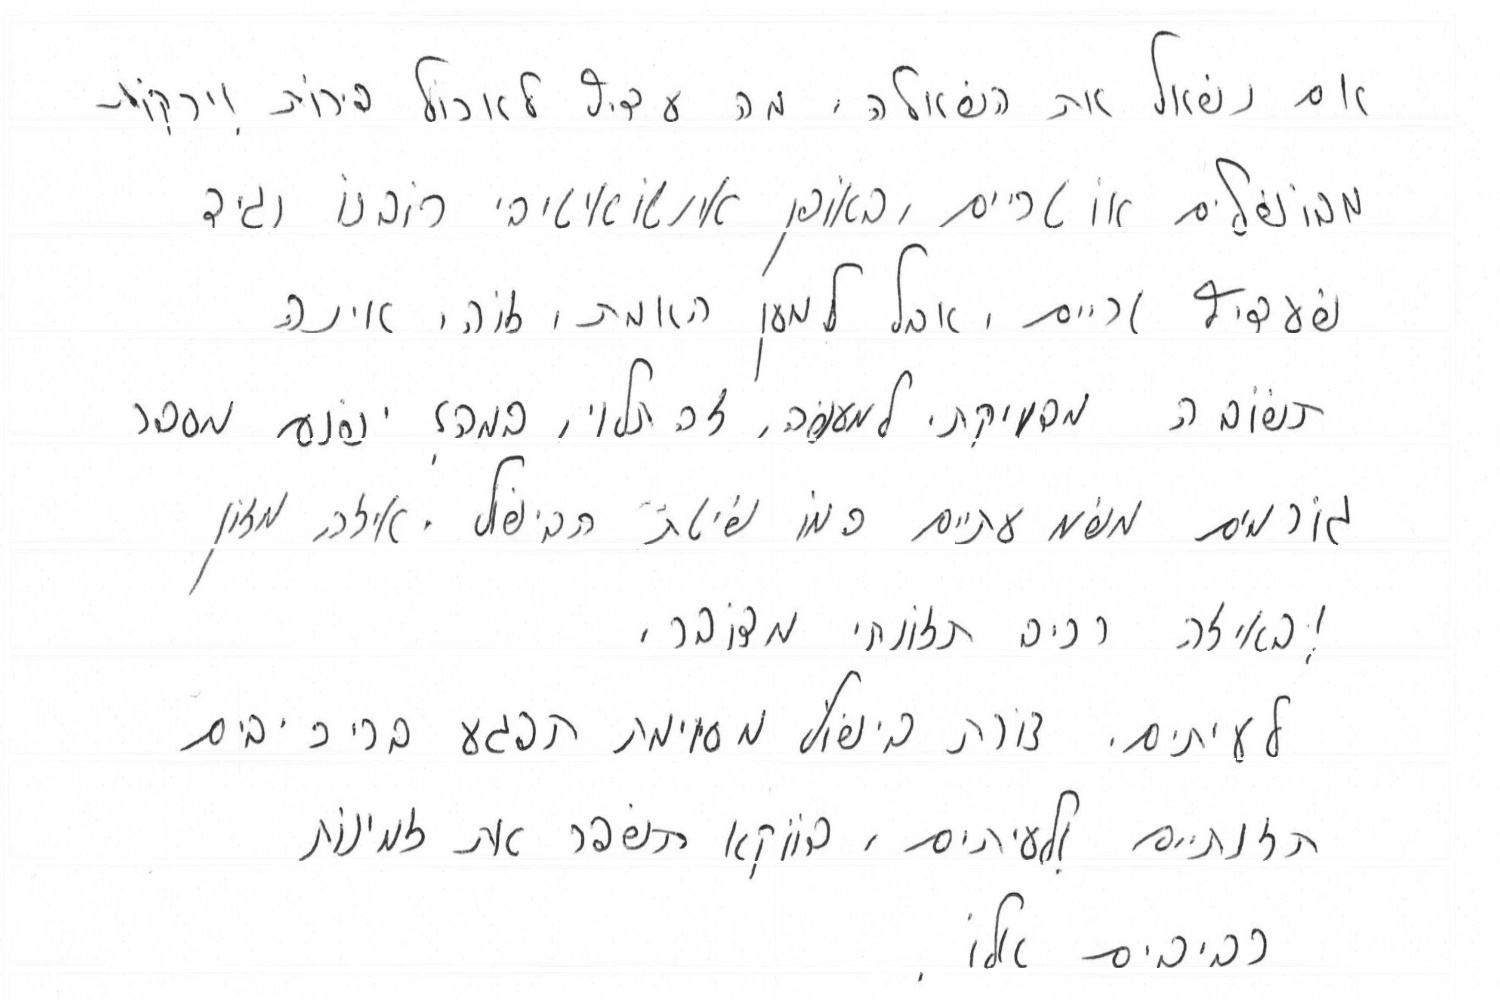 אם נשאל את השאלה, מה עדיף לאכול פירות וירקות
מבושלים או טריים, באופן אינטואיטיבי רובנו נגיד
שעדיף טריים, אבל למען האמת, זוהי אינה
תשובה מדויקת. למעשה, זה תלוי, במה? ישנם מספר
גורמים משמעתיים כמו שיטת הבישול. איזה מזון
ובאיזה רכיב תזונתי מדובר,
לעיתים. צורת בישול מסוימת תפגע בריכיבים
תזנתיים ולעיתים, דווקא תשפר את זמינות
רכיבים אלו.